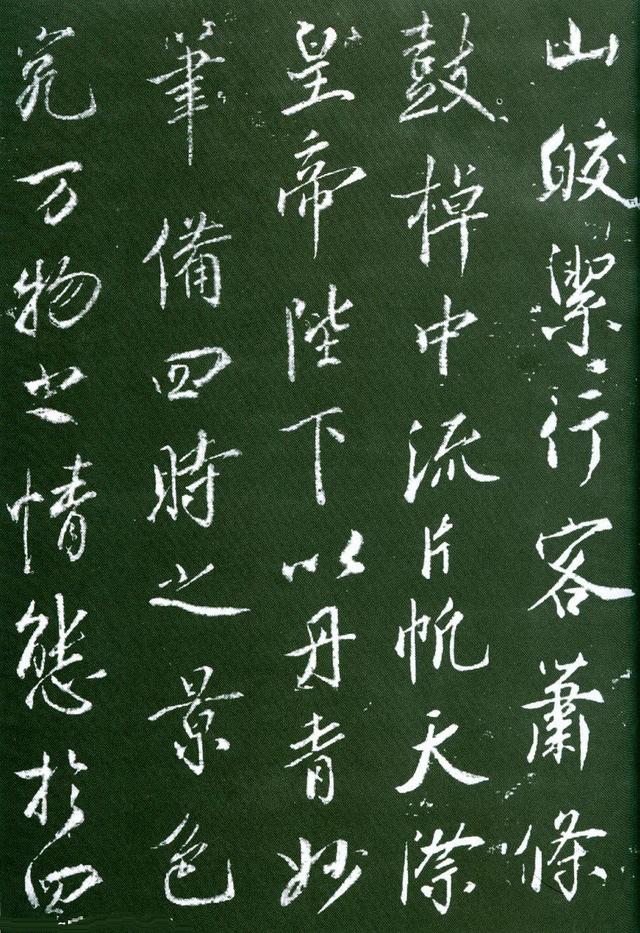 山皎潔行客蕭條
鼓棹中流片帆天際
皇帝陛下以丹青妙
筆備四時之景色
究万物之情態於四